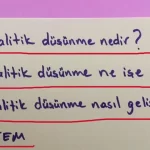 alitik düşünme nedir?
alitik düşünme ne işe
alitik düşünme nasıl geliş
TEM